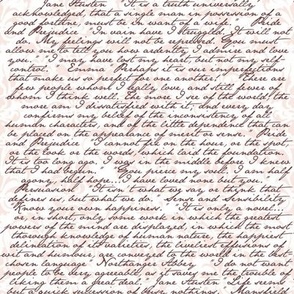 Jane Austen "It is a truth universally
acknowledged, that a single man in possession of a
good fortune, must be in want of a wife." Pride
and Prejudice "In vain have I struggled. It will not
do. My feelings will not be repressed. You must
allow me to tell you how ardently I admire and love
you." "I may have lost my heart, but not my self-
control." Emma "Perhaps it is our imperfections
that make us so perfect for one another!" "There are
few people whom I really love, and still fewer of
whom I think well. The more I see of the world, the
more am I dissatisfied with it; and every day
confirms my belief of the inconsistency of all
human characters, and of the little dependence that can
be placed on the appearance of merit or sense." Pride
and Prejudice "I cannot fix on the hour, or the spot
or the look or the words, which laid the foundation.
It is too long ago. I was in the middle before I knew
that I had begun." "You pierce my soul. I am half
agony, half hope. I have loved none but you."
Persuasion "It isn't what we say or think that
defines us, but what we do." Sense and Sensibility
"Know your own happiness." "It is only a novel...
or, in short, only some work in which the greatest
powers of the mind are displayed, in which the most
thorough knowledge of human nature, the happiest
delineation of its varieties, the liveliest effusions of
wit and humour, are conveyed to the world in the best
chosen language." Northanger Abbey "I do not want
people to be very agreeable, as it saves me the trouble of
liking them a great deal." Jane Austen "Life seems
but a quick succession of busy nothings." Mansfield